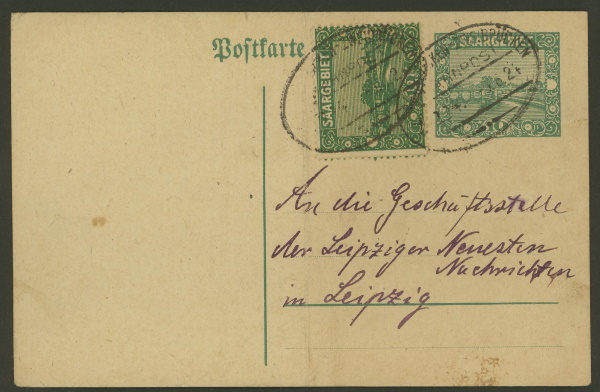 Postkarte
SAARGEBIET
SAARGEBIET
10
An die Geschäftsstelle
der Leipziger Neuesten
Nachrichten
in Leipzig